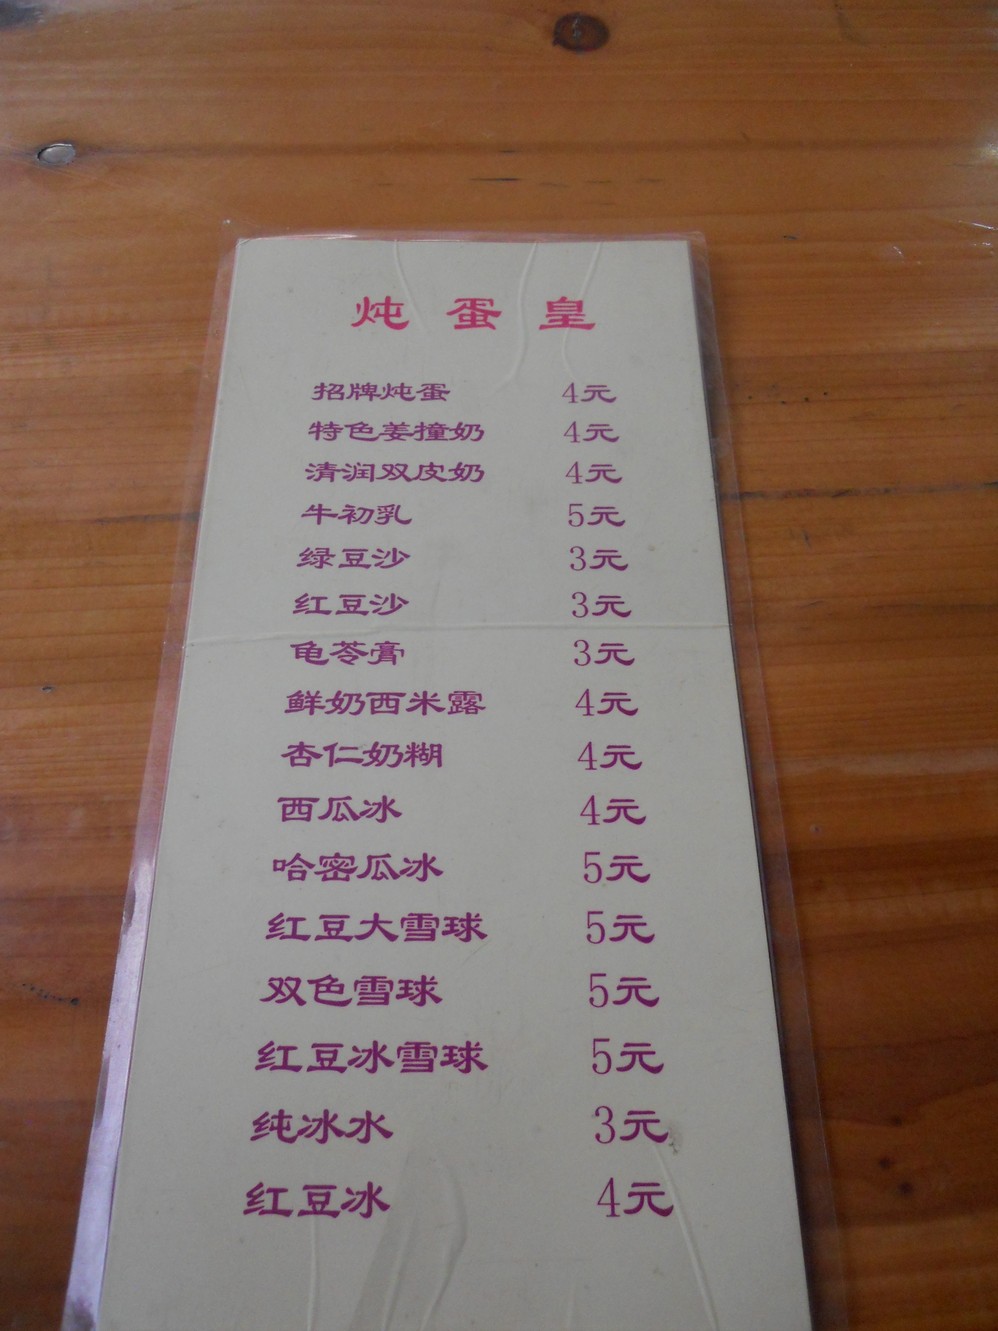 炖蛋皇
招牌炖蛋 4元
特色姜撞奶 4元
清润双皮奶 4元
牛初乳 5元
绿豆沙 3元
红豆沙 3元
龟苓膏 3元
鲜奶西米露 4元
杏仁奶糊 4元
西瓜冰 4元
哈密瓜冰 5元
红豆大雪球 5元
双色雪球 5元
红豆冰雪球 5元
纯冰水 3元
红豆冰 4元